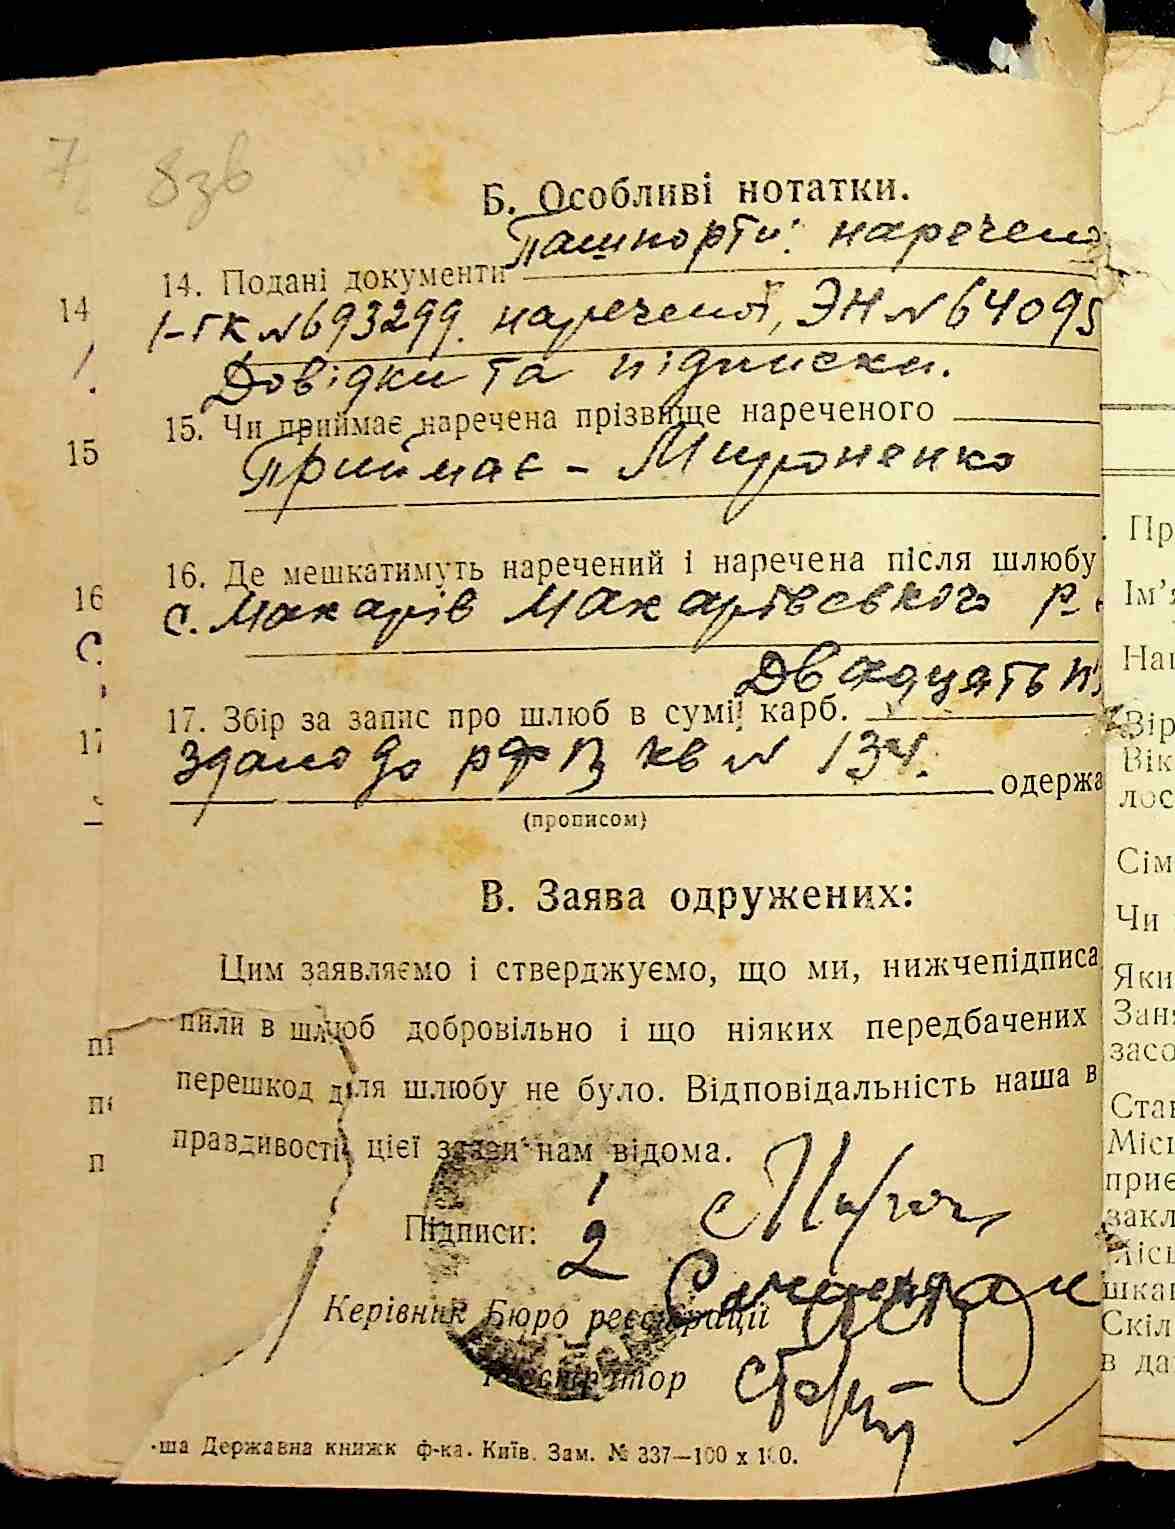 7 8зв
Б. Особливі нотатки.
Пашпорти: наречено
14. Подані документи
1-ГК №693299. нареченої, ЭН №64095
Довідки та підписки.
15. Чи приймає наречена прізвище нареченого
Приймає - Мироненко
16. Де мешкатимуть наречений і наречена після шлюбу
с. Макарів Макарівського р.
Двадцять п'
17. Збір за запис про шлюб в сумі карб.
Здано до РФВ кв № 134. одержа
(прописом)
В. Заява одружених:
Цим заявляємо і стверджуємо, що ми, нижчепідписа
пили в шлюб добровільно і що ніяких передбачених
перешкод для шлюбу не було. Відповідальність наша в
правдивості цієї заяви нам відома.
1
Підписи:
2
Керівник Бюро реєстрації
Реєстратор
ша Державна книжк ф-ка. Київ. Зам. № 337—100 х 100.
14
15
16
С.
17
пі
п
Пр
Ім'я
Нац
Вір
Вік
лос
Сім
Чи
Яки
Заня
засо
Стан
Місц
приє
закл
Місц
шкан
Скіл
в да